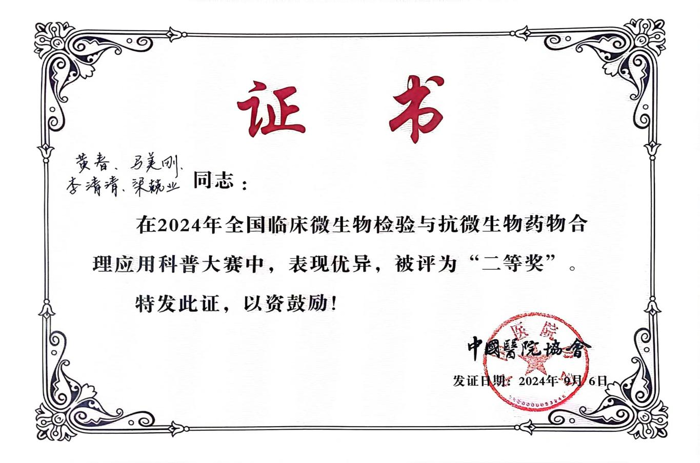 证 书
黄春、马美刚、
李清清、梁毓业 同志：
在2024年全国临床微生物检验与抗微生物药物合
理应用科普大赛中，表现优异，被评为“二等奖”。
特发此证，以资鼓励！
中國醫院協會
发证日期：2024年 9月 6日